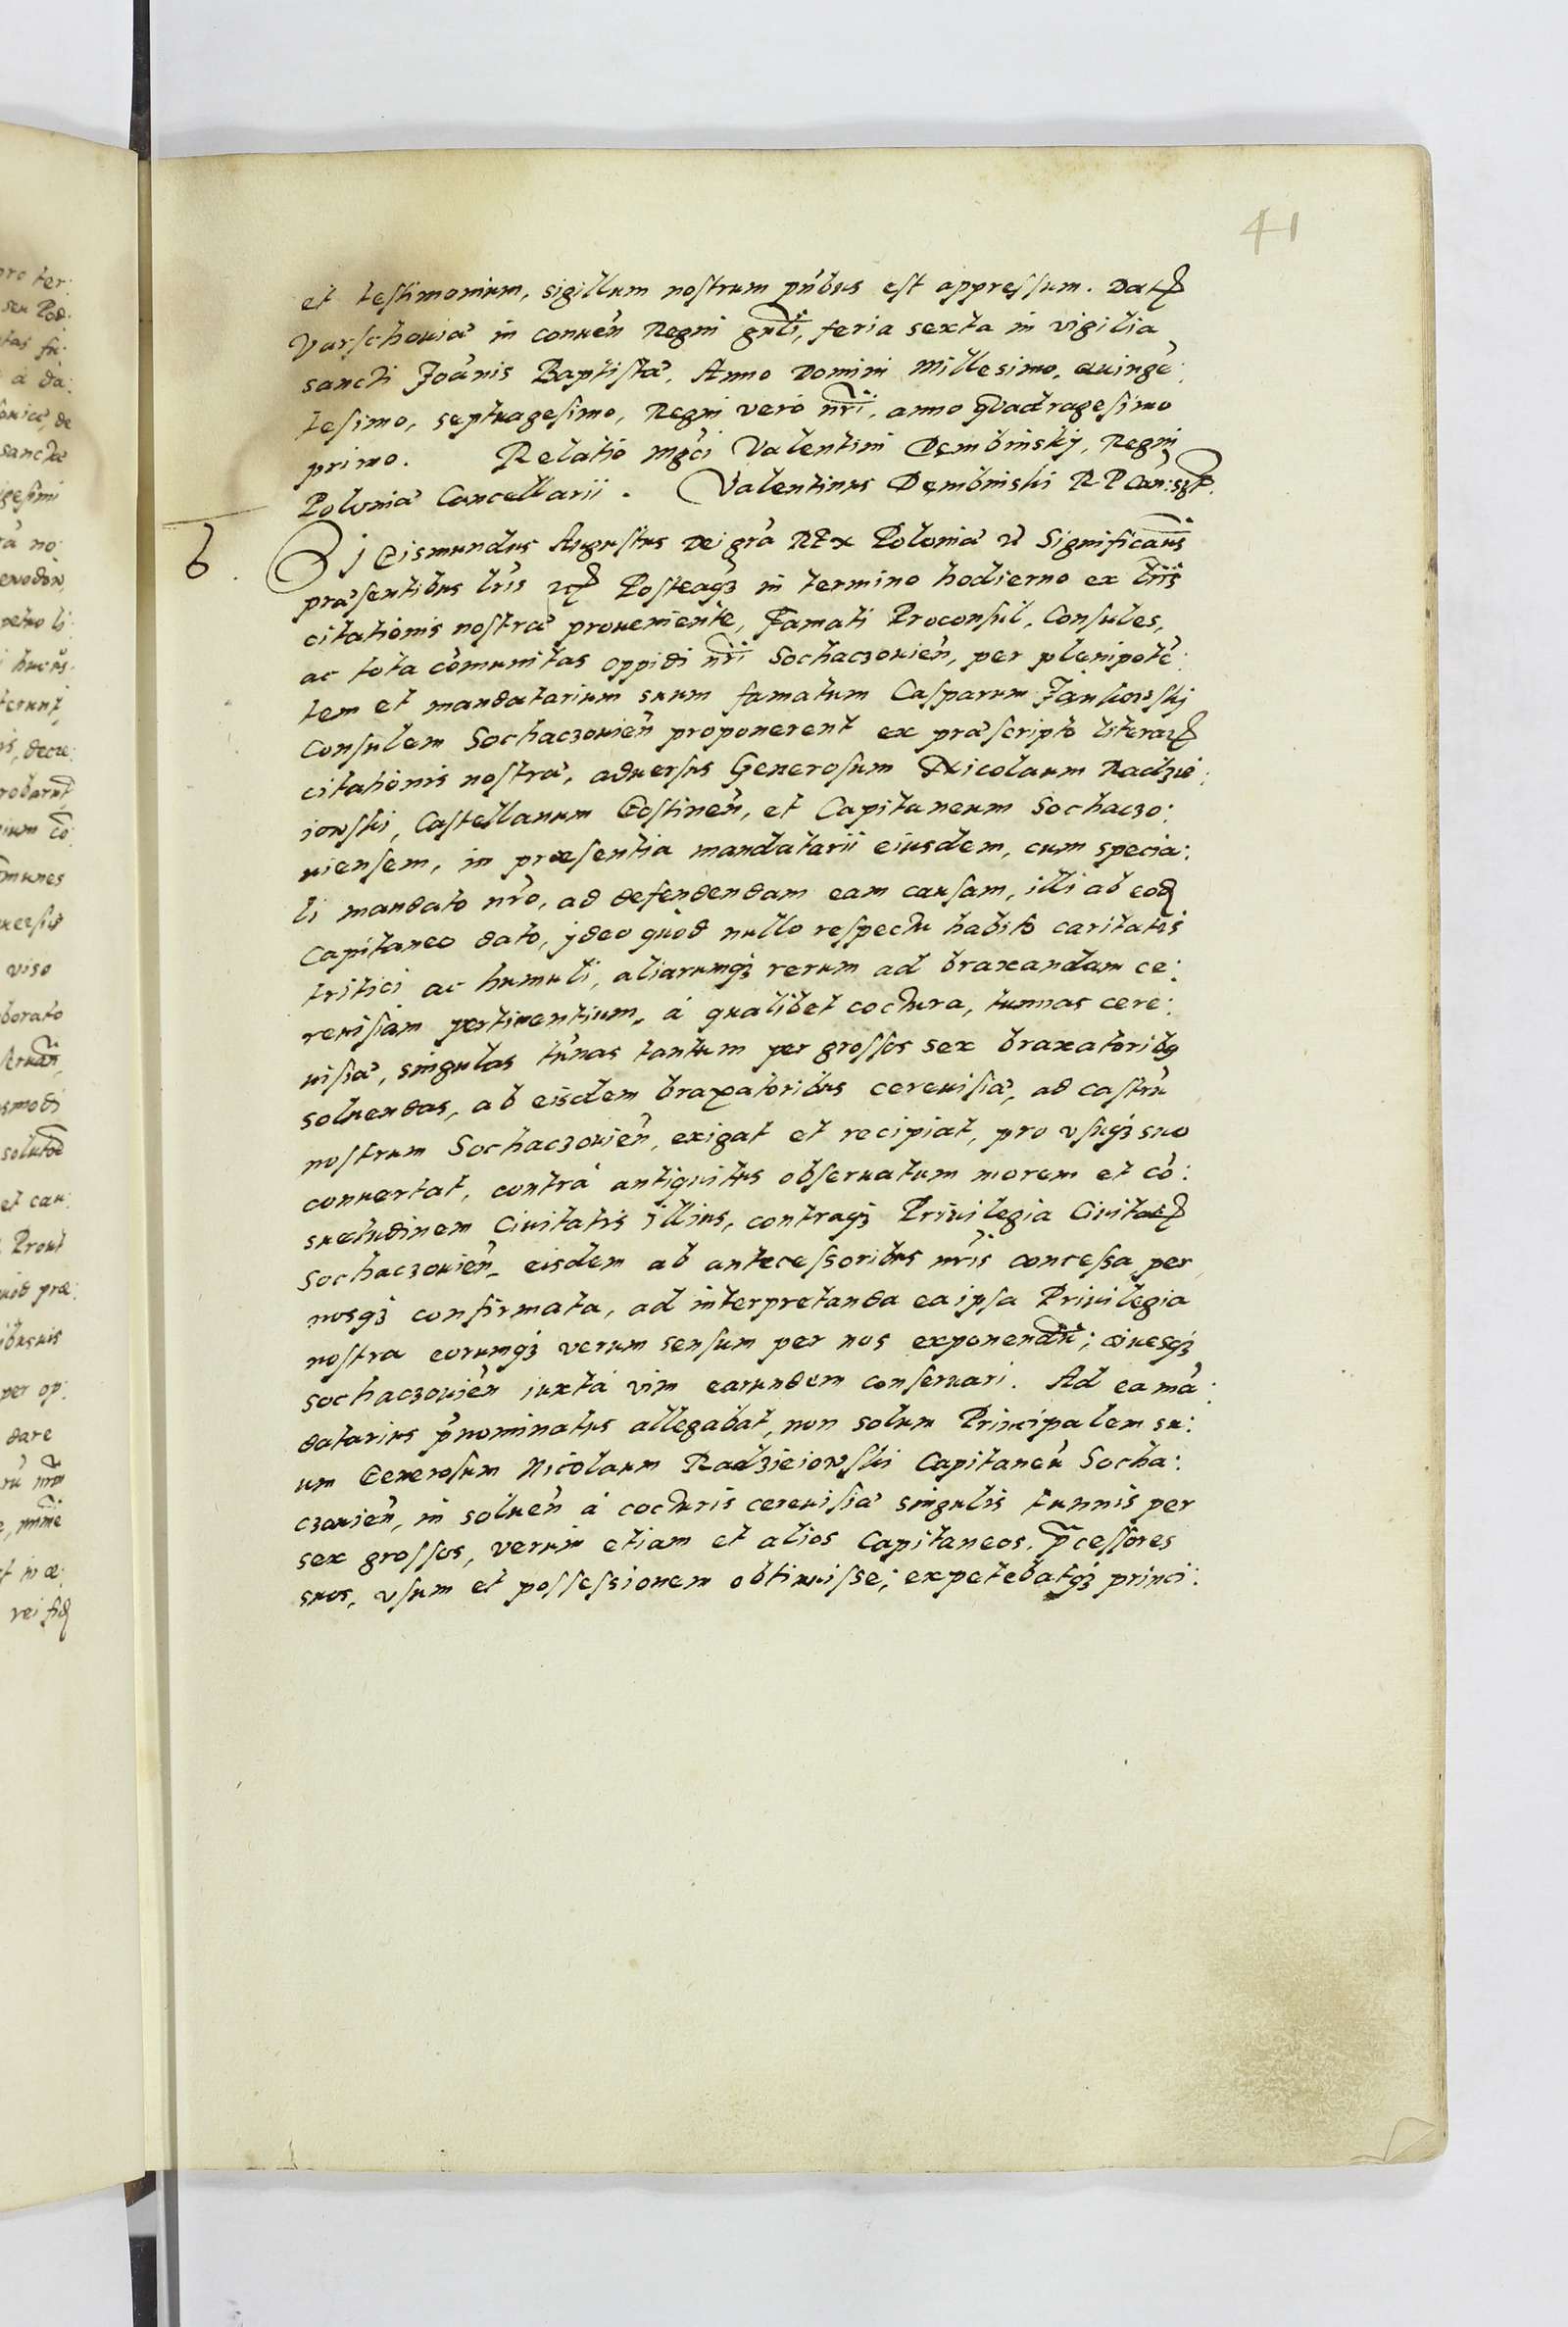 41
et testimonium, sigillum nostrum pn̄bus est appressum. Datꝝ
Varschoviæ in conven̄ Regni gn̄li, feria sexta in vigilia
sancti Joānis Baptistæ. Anno Domini Millesimo, quingē:
tesimo, septuagesimo, Regni verò nr̄i, anno quadragesimo
primo. Relatio mgc̄i Valentini Dembinskÿ, Regni
Poloniæ Cancellarii. Valentinus Dembinski R P Can: sgt.
6. SIGismundus Augustus Dei gr̄a REx Poloniæ ꝛc̄ Significam̄s
præsentibus lr̄is ꝛcꝝ Posteaqȝ in termino hodierno ex lr̄is
citationis nostræ proveniente, Famati Proconsul, Consules,
ac tota cōmunitas oppidi nr̄i Sochaczovien̄, per plenipotē:
tem et mandatarium suum famatum Casparum Jankowskj
Consulem Sochaczovien̄ proponerent ex præscripto literaꝝ
citationis nostræ, adversus Generosum Nicolaum Radzie:
iowski, Castellanum Gostinen̄, et Capitaneum Sochaczo:
viensem, in præsentia mandatarii eiusdem, cum specia:
li mandato nr̄o, ad defendendam eam causam, illi ab eod̄
Capitaneo dato, jdeo quòd nullo respectu habito caritatis
tritici ac humuli, aliarumqȝ rerum ad braxandam ce:
revisiam pertinentium, à qualibet coctura, tunnas cere:
visiæ, singulas tūnas tantum per grossos sex braxatoribꝫ
solvendas, ab eisdem braxatoribus cerevisiæ, ad castrū
nostrum Sochaczovien̄, exigat et recipiat, pro vsuqȝ suo
convertat, contrà antiquitus observatum morem et cō:
suetudinem Civitatis illius, contraqȝ Privilegia Civitaꝝ
Sochaczovien̄ eisdem ab antecessoribus nr̄is concessa per
nosqȝ confirmata, ad interpretanda ea ipsa Privilegia
nostra eorumqȝ verum sensum per nos exponendū; civesqȝ
Sochaczovien̄ iuxtà vim earundem conservari. Ad ea mā:
datarius p̄nominatus allegabat, non solum Principalem su:
um Generosum Nicolaum Radzieiowski Capitaneū Socha:
czovien̄, in solven̄ à cocturis cerevisiæ singulis tunnis per
sex grossos, verum etiam et alios Capitaneos, p̄cessores
suos, vsum et possessionem obtinuisse; expetebatqȝ princi: